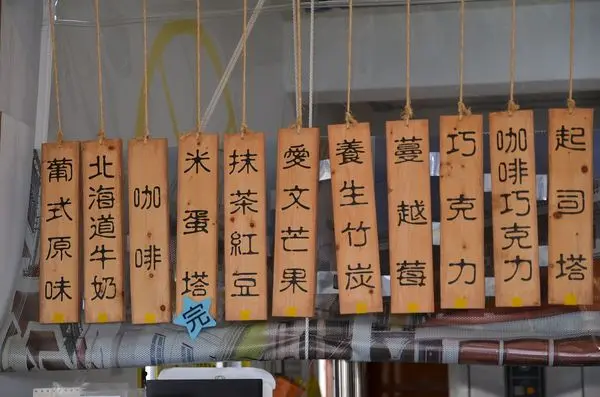 葡式原味
北海道牛奶
咖啡
米蛋塔
完
抹茶紅豆
愛文芒果
養生竹炭
蔓越莓
巧克力
咖啡巧克力
起司塔